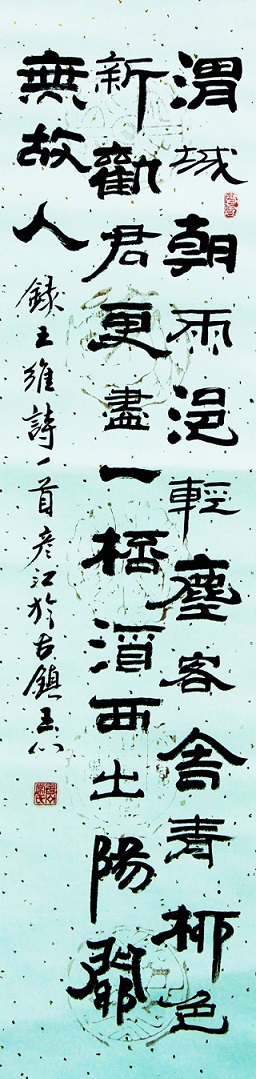 渭城朝雨浥輕塵客舍青柳色
新勸君更盡一桮酒西出陽關
無故人
錄王維詩一首彦江於古鎮